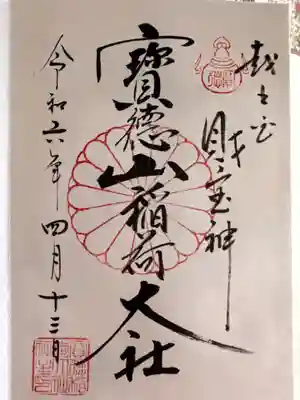 越之国
財宝神
寳徳山稲荷大社
令和六年四月十三日